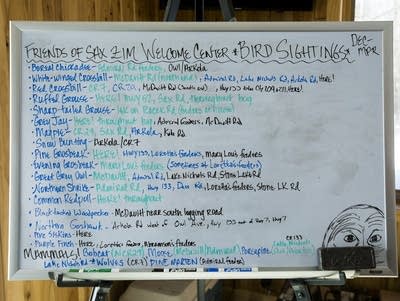 FRIENDS OF SAX ZIM WELCOME CENTER & BIRD SIGHTINGS:
DEC-MAR
•Boreal Chickadee - Admiral Rd feeders, Owl/Arkola
•White-winged Crossbill - McDavitt Rd (north end), Admiral Rd, Lake Nichols Rd, Arkola Rd, Here!
•Red Crossbill - CR7, CR29, McDavitt Rd, Hwy 133
•Ruffed Grouse - HERE! Hwy 52, Sax Rd, throughout bog
•Sharp-tailed Grouse - Lek on Racek Rd
•Grey Jay - HERE! throughout bog, Admiral feeders, McDavitt Rd
•Magpie - CR 29, Sax Rd, Arkola,
•Snow Bunting - Arkola/CR7
•Pine Grosbeak - HERE! Hwy 133, Loretta's feeders, Mary Lou's feeders
•Evening Grosbeak - Mary Lou's feeders (sometimes at Loretta's feeders)
•Great Grey Owl - McDavitt, Admiral Rd, Lake Nichols Rd, Stone Lake Rd
•Northern Shrike - Admiral Rd, Hwy 133, Loretta's feeders, Stone LK Rd
•Common Redpoll - HERE! throughout
•Black-backed Woodpecker - McDavitt near south logging road
•Northern Goshawk - Arkola Rd west of Owl Ave., Hwy 133 east of Hwy 7, Hwy 7
•Pine Siskins - Here
•Purple Finch - Here Loretta's feeders,
MAMMALS! Bobcat (CR29) Moose (McDavitt) Porcupine
CR133
Lake Nichols
WOLVES (CR7) PINE MARTEN (Admiral feeders)